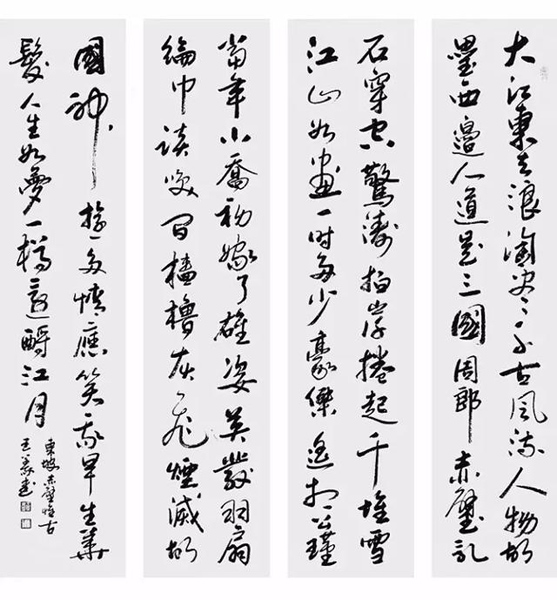 大江東去浪淘盡千古風流人物故
壘西邊人道是三國周郎赤壁亂
石穿空驚濤拍岸捲起千堆雪
江山如畫一時多少豪傑遙想公瑾
當年小喬初嫁了雄姿英發羽扇
綸巾談笑間檣櫓灰飛煙滅故
國神遊多情應笑我早生華
髮人生如夢一樽還酹江月
東坡赤壁懷古